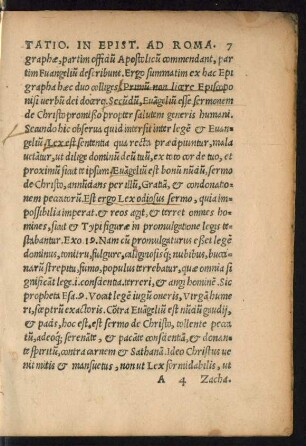 TATIO. IN EPIST. AD ROMA. 7
graphæ, partim officiū Apostolicū commendant, par
tim Euangeliū describunt. Ergo summatim ex hac Epi
grapha hæc duo colliges. Primū non licere Episcopo
nisi uerbū dei docere. Secūdū, Euāgeliū esse sermonem
de Christo promisso propter salutem generis humani.
Secundo hic obserua quid intersit inter legē & Euan-
geliū. Lex est sententia qua recta præcipiuntur, mala
uetātur, ut dilige dominū deū tuū, ex toto corde tuo, et
proximū sicut te ipsum. Euāgeliū est bonū nūciū, sermo
de Christo, annūcians per illū, Gratiā, & condonatio-
nem peccatorū. Est ergo Lex odiosus sermo, quia im-
possibilia imperat. & reos agit, & terret omnes ho-
mines, sicut & Typi figuræ in promulgatione legis te-
stabantur. Exo. 19. Nam cū promulgaturus esset legē
dominus, tonitru, fulgure, caliginosisq; nubibus, bucci-
narū strepitu, fumo, populus terrebatur, quæ omnia si
gnificāt lege .i. conscientia.terreri, & angi hominē. Sic
propheta Esa. 9. Vocat legē iugū oneris, Virgā hume
ri, sceptrū exactoris. Cōtra Euāgeliū est nūciū gaudij,
& pacis, hoc est, est sermo de Christo, tollente pecca
tū, adeoq; serenāte, & pacāte conscientiā, & donan-
te spiritū, contra carnem & Sathanā. Ideo Christus ue
nit mitis & mansuetus, non ut Lex formidabilis, ut
A 4 Zacha.